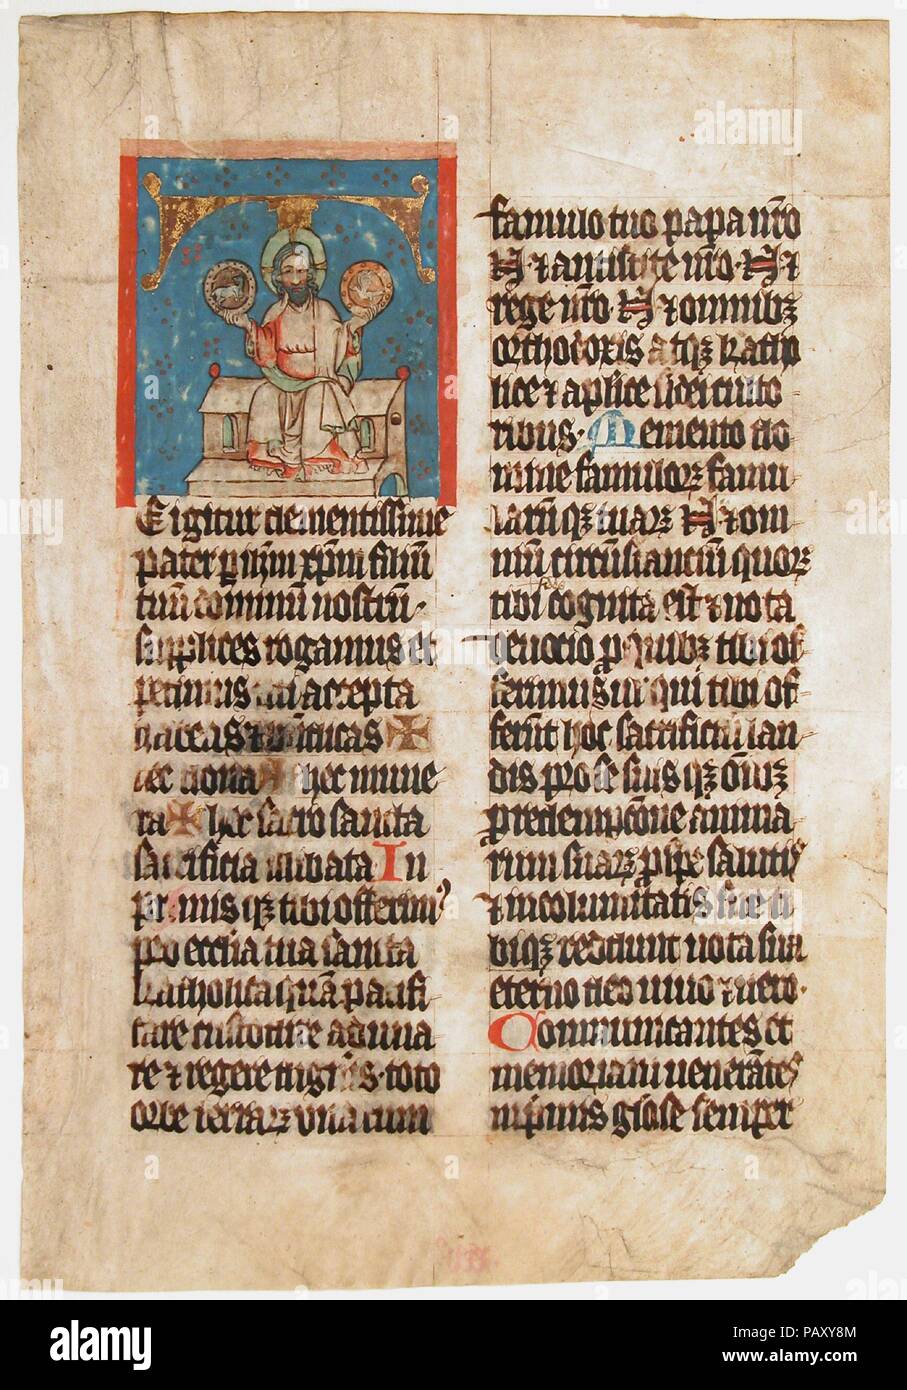 E igitur clementissime
pater p ihm xpm filiū
tuū dominū nostrū ·
supplices rogamus et
petimus uti accepta
habeas ⁊ bn̄dicas ✠
hec dona ✠ hec mune
ra ✠ hec sacro sancta
sacrificia illibata In
primis qz tibi offerim᷒
pro ecclia tua sancta
katholica quā pacifi
care custodire aduna
re ⁊ regere digris · toto
orbe terrarꝝ vna cum
famulo tuo papa nr̄o
N ⁊ antistite nr̄o · N ⁊
rege nr̄o · N ⁊ omnibꝫ
orthodoxis atqꝫ katho
lice ⁊ aplice fidei culto
ribus · Memento do
mine famulorꝝ famu
larūqꝫ tuarꝝ N ⁊ om
niū circūstanciū quorꝝ
tibi fides cognita est ⁊ nota
deuocio ꝓ quibꝫ tibi of
ferimus ul qui tibi of
ferūt hoc sacrificiū lau
dis pro se suis qꝫ om̄ibꝫ
ꝓ redempcōne anima
rum suarꝝ ꝓ spe salutis
⁊ incolumitatis sue ti
biqꝫ reddunt uota sua
eterno deo uiuo ⁊ uero ·
Communicantes et
memoriam uenerātes
inpimis gl̄ose semper
alamy
Image ID: PAXY8M
www.alamy.com